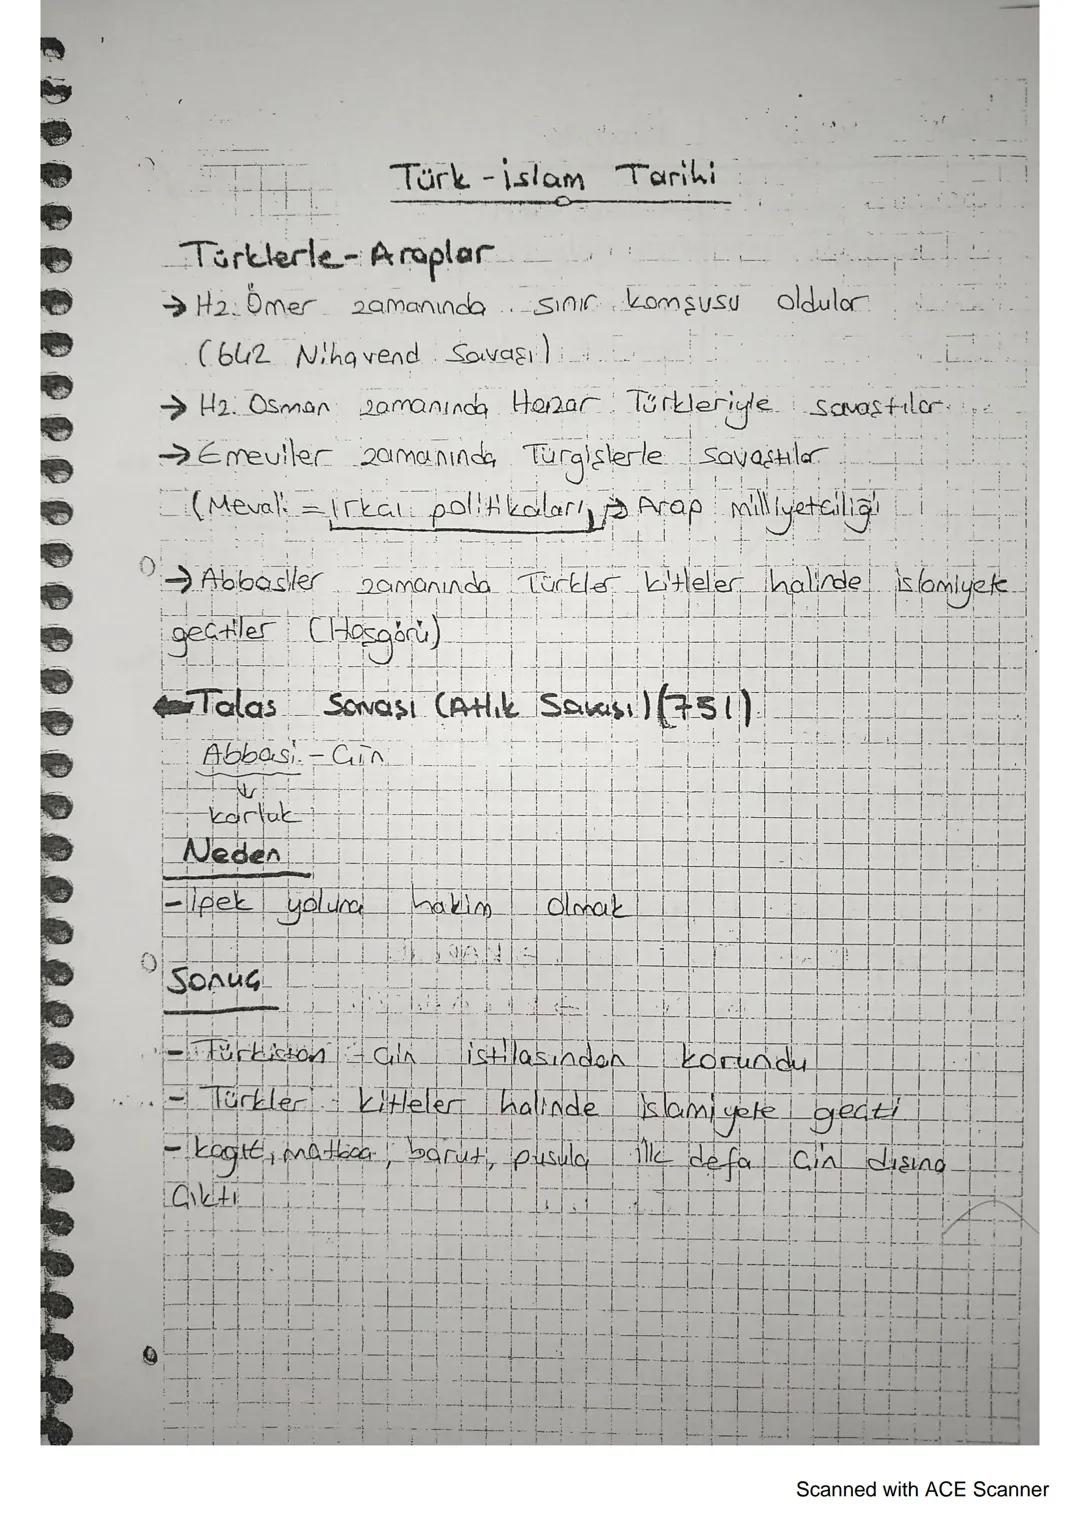 Türk-islam Tarihi
Türklerle-Araplar
→ Hz. Ömer zamanında sınır komşusu oldular
(642 Nihavend Savaşı)
→ Hz. Osman zamanında Hazar Türkleriyle savaştılar
→ Emeviler zamanında Türgişlerle savaştılar
(Mevali = ırkçı politikaları, → Arap milliyetçiliği
→ Abbasiler zamanında Türkler kitleler halinde islamiyete
geçtiler (Hoşgörü)
Talas Savaşı (Atlık Savaşı) (751)
Abbasi - Çin
↓
karluk
Neden
- ipek yoluna hakim olmak
Sonuç
- Türkistan Çin istilasından korundu
- Türkler kitleler halinde islamiyete geçti
- kağıt, matbaa, barut, pusula ilk defa Çin dışına
Çıktı
Scanned with ACE Scanner